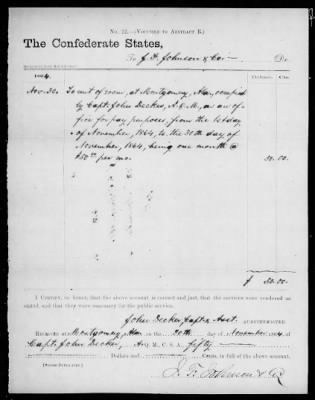 No. 22.—(Voucher to Abstract B.)
The Confederate States,
To J. F. Johnson & Co. Dr.
1864. Dollars. Cents.
Nov. 30. To rent of room, at Montgomery, Ala, occupied
by Capt. John Decker, A.Q.M., as an of-
fice for pay purposes, from the 1st day
of November, 1864, to the 30th day of
November, 1864, being one month @
$50.00 per mo. 50.00.
$ 50.00.
I Certify, on honor, that the above account is correct and just; that the services were rendered as
stated, and that they were necessary for the public service.
John Decker, Capt & Asst. Quartermaster.
Received at Montgomery, Ala on the 30th day of November 1864, of
Capt. John Decker, A.Q.M., C. S. A., fifty
Dollars and Cents, in full of the above account.
(Signed Duplicates.)
J. F. Johnson & Co